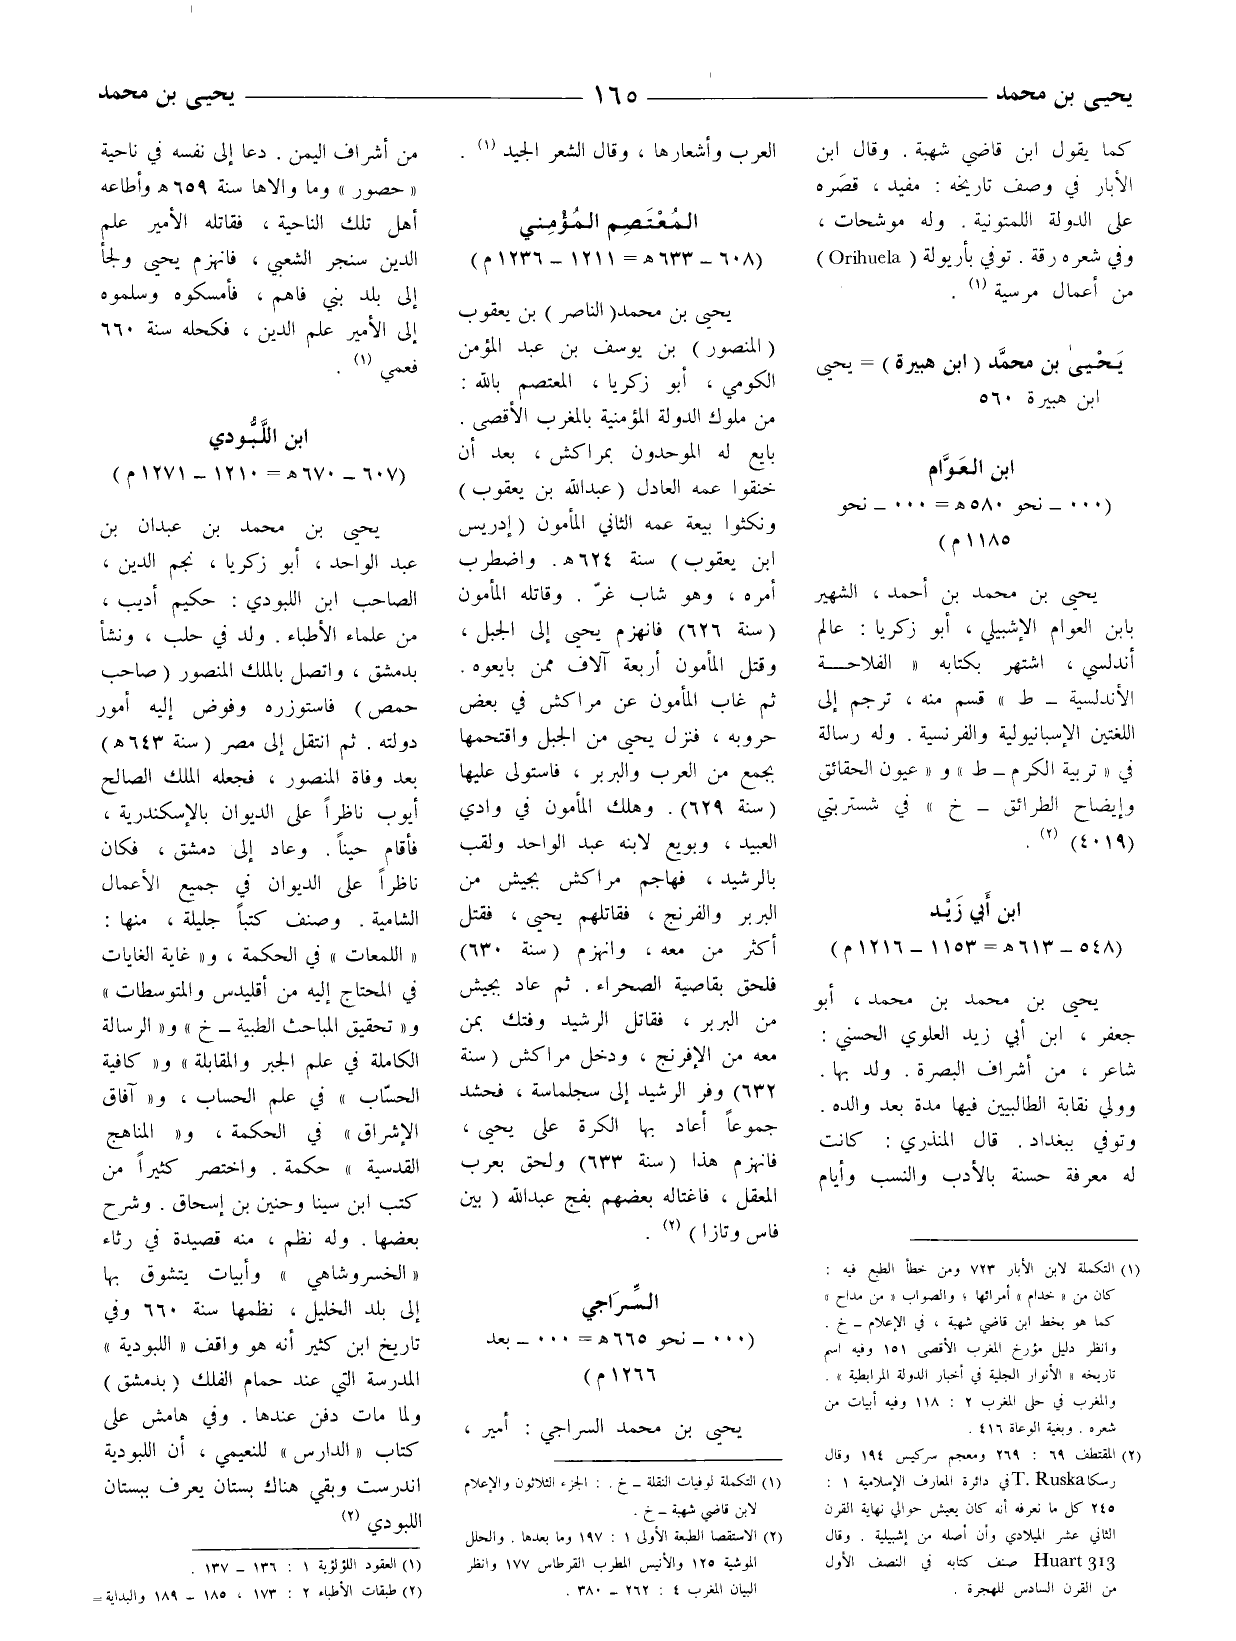 يحيى بن محمد
١٦٥
يحيى بن محمد
كما يقول ابن قاضي شهبة . وقال ابن
الأبار في وصف تاريخه : مفيد ، قصَره
على الدولة اللمتونية . وله موشحات ،
وفي شعره رقة . توفي بأريولة ( Orihuela )
من أعمال مرسية (١) .
يَحْيىٰ بن محمَّد ( ابن هبيرة ) = يحيى
ابن هبيرة ٥٦٠
ابن العَوَّام
(٠٠٠ ــ نحو ٥٨٠ ه = ٠٠٠ ــ نحو
١١٨٥ م)
يحيى بن محمد بن أحمد ، الشهير
بابن العوام الإشبيلي ، أبو زكريا : عالم
أندلسي ، اشتهر بكتابه « الفلاحـــة
الأندلسية ــ ط » قسم منه ، ترجم إلى
اللغتين الإسبانيولية والفرنسية . وله رسالة
في « تربية الكرم ــ ط » و « عيون الحقائق
وإيضاح الطرائق ــ خ » في شستربتي
(٤٠١٩) (٢) .
ابن أَبي زَيْد
(٥٤٨ ــ ٦١٣ ه = ١١٥٣ ــ ١٢١٦ م)
يحيى بن محمد بن محمد ، أبو
جعفر ، ابن أبي زيد العلوي الحسني :
شاعر ، من أشراف البصرة . ولد بها .
وولي نقابة الطالبيين فيها مدة بعد والده .
وتوفي ببغداد . قال المنذري : كانت
له معرفة حسنة بالأدب والنسب وأيام
(١) التكملة لابن الأبار ٧٢٣ ومن خطأ الطبع فيه :
كان من « خدام » أمرائها ؛ والصواب « من مداح »
كما هو بخط ابن قاضي شهبة ، في الإعلام ــ خ .
وانظر دليل مؤرخ المغرب الأقصى ١٥١ وفيه اسم
تاريخه « الأنوار الجلية في أخبار الدولة المرابطية » .
والمغرب في حلى المغرب ٢ : ١١٨ وفيه أبيات من
شعره . وبغية الوعاة ٤١٦ .
(٢) المقتطف ٦٩ : ٢٦٩ ومعجم سركيس ١٩٤ وقال
رسكا T. Ruska في دائرة المعارف الإسلامية ١ :
٢٤٥ كل ما نعرفه أنه كان يعيش حوالي نهاية القرن
الثاني عشر الميلادي وأن أصله من إشبيلية . وقال
Huart 313 صنف كتابه في النصف الأول
من القرن السادس للهجرة .
العرب وأشعارها ، وقال الشعر الجيد (١) .
المُعْتَصِم المُؤْمِني
(٦٠٨ ــ ٦٣٣ ه = ١٢١١ ــ ١٢٣٦ م)
يحيى بن محمد( الناصر ) بن يعقوب
( المنصور ) بن يوسف بن عبد المؤمن
الكومي ، أبو زكريا ، المعتصم بالله :
من ملوك الدولة المؤمنية بالمغرب الأقصى .
بايع له الموحدون بمراكش ، بعد أن
خنقوا عمه العادل ( عبدالله بن يعقوب )
ونكثوا بيعة عمه الثاني المأمون ( إدريس
ابن يعقوب ) سنة ٦٢٤ ه. واضطرب
أمره ، وهو شاب غرّ . وقاتله المأمون
( سنة ٦٢٦) فانهزم يحيى إلى الجبل ،
وقتل المأمون أربعة آلاف ممن بايعوه .
ثم غاب المأمون عن مراكش في بعض
حروبه ، فنزل يحيى من الجبل واقتحمها
بجمع من العرب والبربر ، فاستولى عليها
( سنة ٦٢٩). وهلك المأمون في وادي
العبيد ، وبويع لابنه عبد الواحد ولقب
بالرشيد ، فهاجم مراكش بجيش من
البربر والفرنج ، فقاتلهم يحيى ، فقتل
أكثر من معه ، وانهزم ( سنة ٦٣٠)
فلحق بقاصية الصحراء . ثم عاد بجيش
من البربر ، فقاتل الرشيد وفتك بمن
معه من الإفرنج ، ودخل مراكش ( سنة
٦٣٢) وفر الرشيد إلى سجلماسة ، فحشد
جموعاً أعاد بها الكرة على يحيى ،
فانهزم هذا ( سنة ٦٣٣) ولحق بعرب
المعقل ، فاغتاله بعضهم بفج عبدالله ( بين
فاس وتازا ) (٢) .
السِّرَاجي
(٠٠٠ ــ نحو ٦٦٥ ه = ٠٠٠ ــ بعد
١٢٦٦ م)
يحيى بن محمد السراجي : أمير ،
(١) التكملة لوفيات النقلة ــ خ . : الجزء الثلاثون والإعلام
لابن قاضي شهبة ــ خ .
(٢) الاستقصا الطبعة الأولى ١ : ١٩٧ وما بعدها . والحلل
الموشية ١٢٥ والأنيس المطرب القرطاس ١٧٧ وانظر
البيان المغرب ٤ : ٢٦٢ ــ ٣٨٠ .
من أشراف اليمن . دعا إلى نفسه في ناحية
« حضور » وما والاها سنة ٦٥٩ ه وأطاعه
أهل تلك الناحية ، فقاتله الأمير علم
الدين سنجر الشعبي ، فانهزم يحيى ولجأ
إلى بلد بني فاهم ، فأمسكوه وسلموه
إلى الأمير علم الدين ، فكحله سنة ٦٦٠
فعمي (١) .
ابن اللَّبُّودي
(٦٠٧ ــ ٦٧٠ ه = ١٢١٠ ــ ١٢٧١ م)
يحيى بن محمد بن عبدان بن
عبد الواحد ، أبو زكريا ، نجم الدين ،
الصاحب ابن اللبودي : حكيم أديب ،
من علماء الأطباء . ولد في حلب ، ونشأ
بدمشق ، واتصل بالملك المنصور ( صاحب
حمص ) فاستوزره وفوض إليه أمور
دولته . ثم انتقل إلى مصر ( سنة ٦٤٣ ه )
بعد وفاة المنصور ، فجعله الملك الصالح
أيوب ناظراً على الديوان بالإسكندرية ،
فأقام حيناً . وعاد إلى دمشق ، فكان
ناظراً على الديوان في جميع الأعمال
الشامية . وصنف كتباً جليلة ، منها :
« اللمعات » في الحكمة ، و« غاية الغايات
في المحتاج إليه من أقليدس والمتوسطات »
و« تحقيق المباحث الطبية ــ خ » و« الرسالة
الكاملة في علم الجبر والمقابلة » و« كافية
الحسّاب » في علم الحساب ، و« آفاق
الإشراق » في الحكمة ، و« المناهج
القدسية » حكمة . واختصر كثيراً من
كتب ابن سينا وحنين بن إسحاق . وشرح
بعضها . وله نظم ، منه قصيدة في رثاء
« الخسروشاهي » وأبيات يتشوق بها
إلى بلد الخليل ، نظمها سنة ٦٦٠ وفي
تاريخ ابن كثير أنه هو واقف « اللبودية »
المدرسة التي عند حمام الفلك ( بدمشق )
ولما مات دفن عندها . وفي هامش على
كتاب « الدارس » للنعيمي ، أن اللبودية
اندرست وبقي هناك بستان يعرف ببستان
اللبودي (٢)
(١) العقود اللؤلؤية ١ : ١٣٦ ــ ١٣٧ .
(٢) طبقات الأطباء ٢ : ١٧٣ ، ١٨٥ ــ ١٨٩ والبداية =